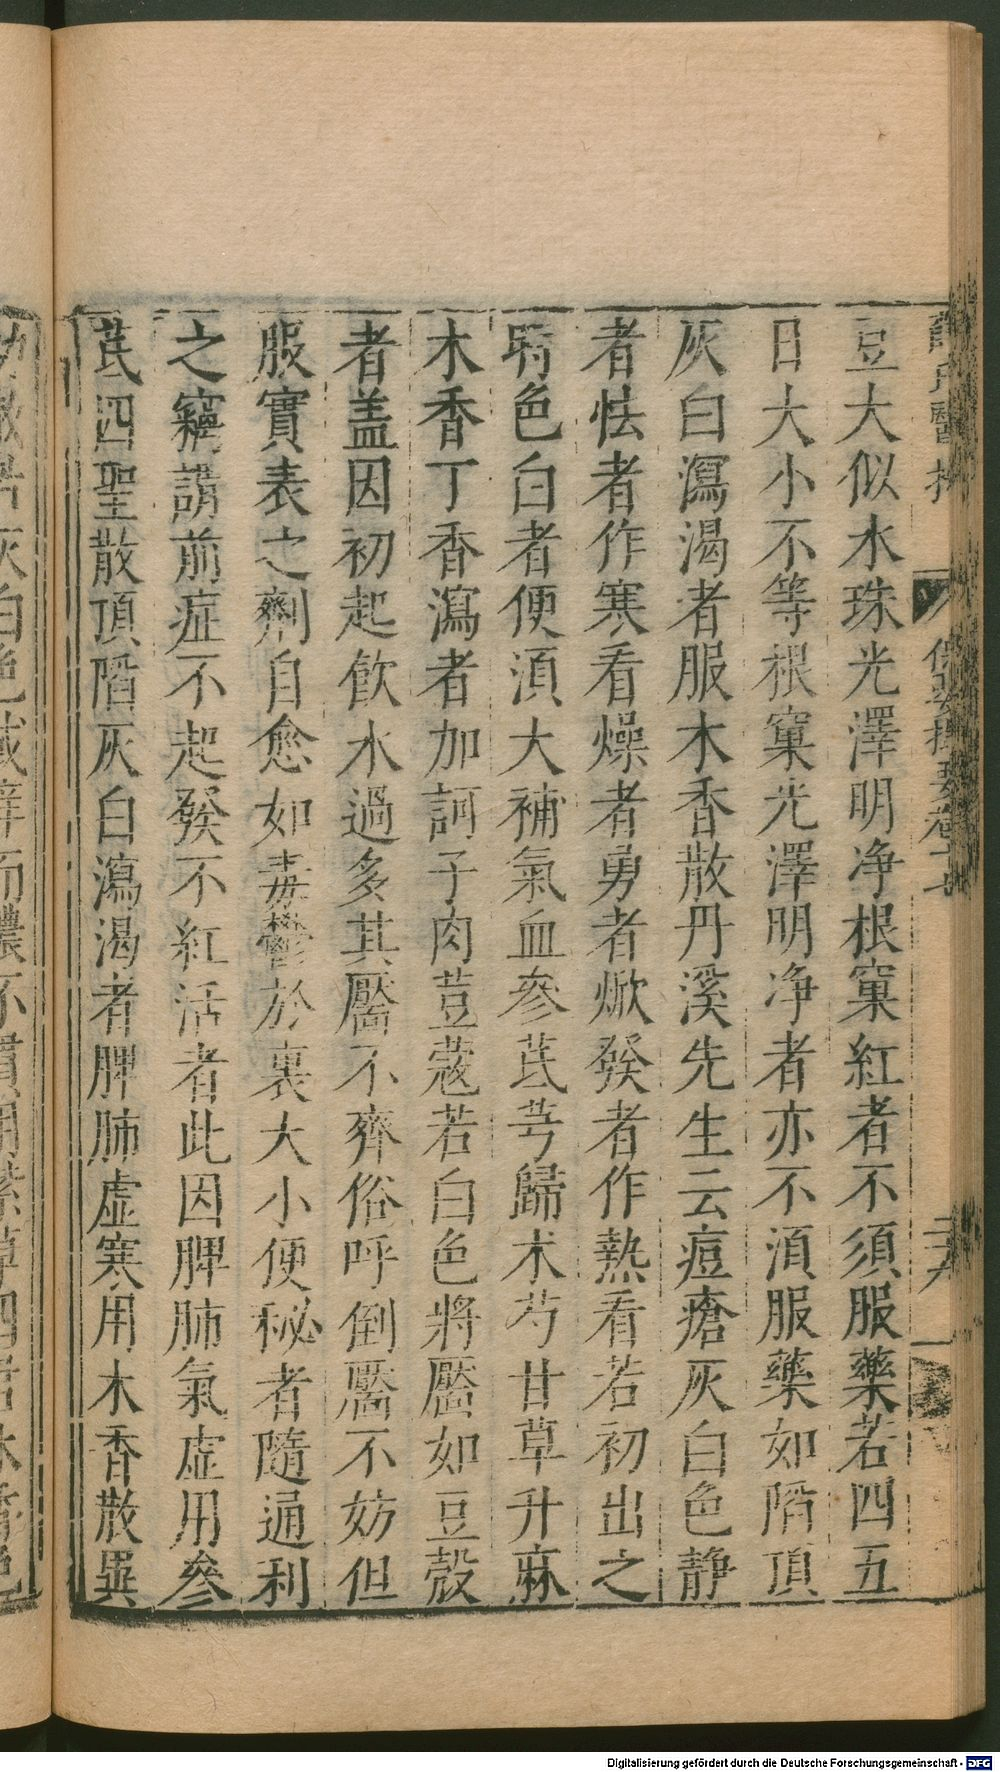 豆大似水珠光澤明净根窠紅者不須服藥若四五
日大小不等根窠光澤明净者亦不湏服藥如陷頂
灰白瀉渴者服木香散丹溪先生云痘瘡灰白色静
者怯者作寒看燥者勇者焮發者作熱看若初出之
時色白者便湏大補氣血參芪芎歸术芍甘草升麻
木香丁香瀉者加訶子肉荳蔻若白色將靨如豆殼
者盖因初起飲水過多其靨不齊俗呼倒靨不妨但
服實表之劑自愈如毒鬱於裏大小便秘者隨通利
之竊謂前症不起發不紅活者此因脾肺氣虚用參
芪四聖散頂陷灰白瀉渴者脾肺虚寒用木香散異
Digitalisierung gefördert durch die Deutsche Forschungsgemeinschaft - DFG